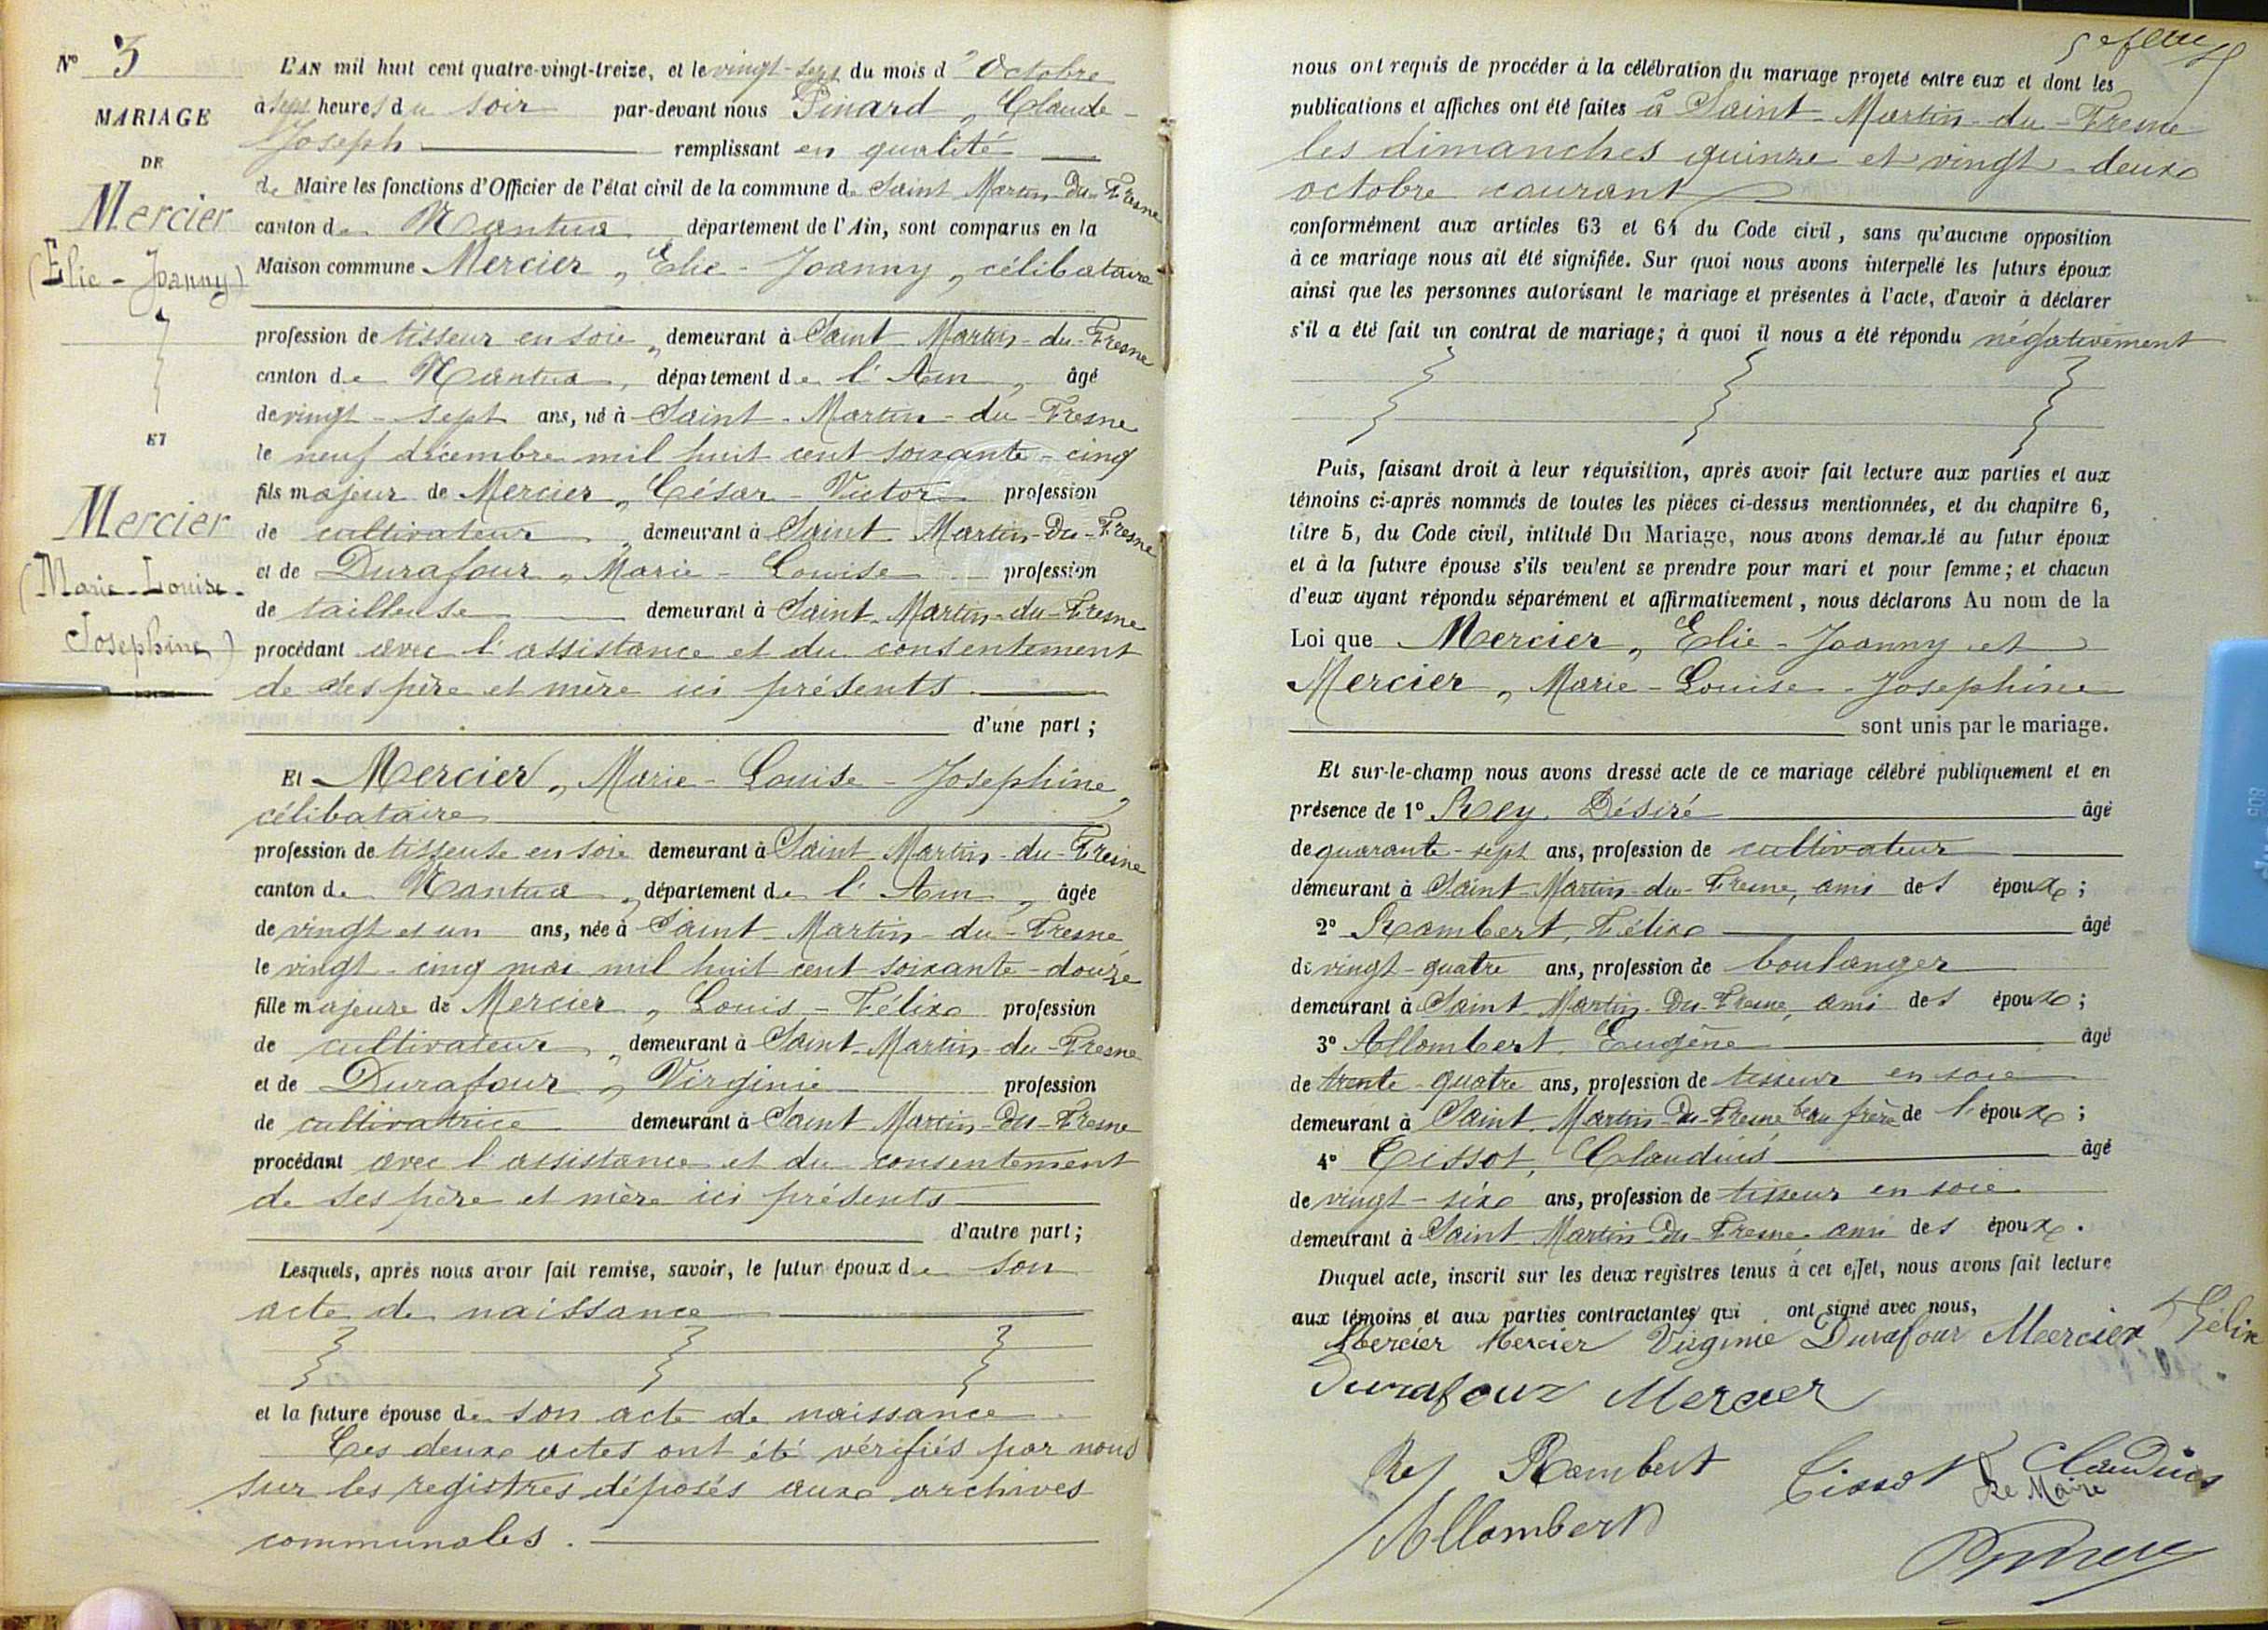 N° 3
MARIAGE
DE
Mercier
(Elie - Joanny)
ET
Mercier
(Marie-Louise-
Josephine)
L'AN mil huit cent quatre-vingt-treize, et le vingt-sept du mois d'Octobre
à sept heures du soir par-devant nous Pinard, Claude-
Joseph remplissant en qualité
de Maire les fonctions d'Officier de l'état civil de la commune de Saint Martin-Du-Fresne
canton de Nantua département de l'Ain, sont comparus en la
Maison commune Mercier, Elie - Joanny, célibataire
profession de tisseur en soie, demeurant à Saint Martin-du-Fresne
canton de Nantua, département de l'Ain, âgé
de vingt-sept ans, né à Saint-Martin-du-Fresne
le neuf décembre mil huit cent soixante-cinq
fils majeur de Mercier, César-Victor profession
de cultivateur, demeurant à Saint Martin-Du-Fresne
et de Durafour, Marie-Louise profession
de tailleuse demeurant à Saint-Martin-du-Fresne
procédant avec l'assistance et du consentement
de ses père et mère ici présents
d'une part;
Et Mercier, Marie-Louise-Josephine,
célibataire
profession de tisseuse en soie demeurant à Saint Martin-du-Fresne
canton de Nantua, département de l'Ain, âgée
de vingt et un ans, née à Saint-Martin-du-Fresne
le vingt-cinq mai mil huit cent soixante-douze
fille majeure de Mercier, Louis-Félix profession
de cultivateur, demeurant à Saint-Martin-du-Fresne
et de Durafour, Virginie profession
de cultivatrice demeurant à Saint Martin-Du-Fresne
procédant avec l'assistance et du consentement
de ses père et mère ici présents
d'autre part;
Lesquels, après nous avoir fait remise, savoir, le futur époux de son
acte de naissance
et la future épouse de son acte de naissance
Ces deux actes ont été vérifiés par nous
sur les registres déposés aux archives
communales.
nous ont requis de procéder à la célébration du mariage projeté entre eux et dont les
publications et affiches ont été faites à Saint-Martin-du-Fresne
les dimanches quinze et vingt-deux
octobre courant
conformément aux articles 63 et 64 du Code civil, sans qu'aucune opposition
à ce mariage nous ait été signifiée. Sur quoi nous avons interpellé les futurs époux
ainsi que les personnes autorisant le mariage et présentes à l'acte, d'avoir à déclarer
s'il a été fait un contrat de mariage; à quoi il nous a été répondu négativement
Puis, faisant droit à leur réquisition, après avoir fait lecture aux parties et aux
témoins ci-après nommés de toutes les pièces ci-dessus mentionnées, et du chapitre 6,
titre 5, du Code civil, intitulé Du Mariage, nous avons demandé au futur époux
et à la future épouse s'ils veulent se prendre pour mari et pour femme; et chacun
d'eux ayant répondu séparément et affirmativement, nous déclarons Au nom de la
Loi que Mercier, Elie-Joanny et
Mercier, Marie-Louise-Josephine
sont unis par le mariage.
Et sur-le-champ nous avons dressé acte de ce mariage célébré publiquement et en
présence de 1° Rey Désiré âgé
de quarante-sept ans, profession de cultivateur
demeurant à Saint-Martin-du-Fresne, ami des époux;
2° Rambert, Félix âgé
de vingt-quatre ans, profession de boulanger
demeurant à Saint Martin-Du-Fresne, ami des époux;
3° Allombert, Eugène âgé
de trente-quatre ans, profession de tisseur en soie
demeurant à Saint Martin-Du-Fresne beau frère de l'époux;
4° Tissot, Claudius âgé
de vingt-six ans, profession de tisseur en soie
demeurant à Saint Martin-Du-Fresne ami des époux.
Duquel acte, inscrit sur les deux registres tenus à cet effet, nous avons fait lecture
aux témoins et aux parties contractantes qui ont signé avec nous,
Mercier Mercier Virginie Durafour Mercier Félix
Durafour Mercier
Rey Rambert Tissot Claudius
Le Maire
Allombert